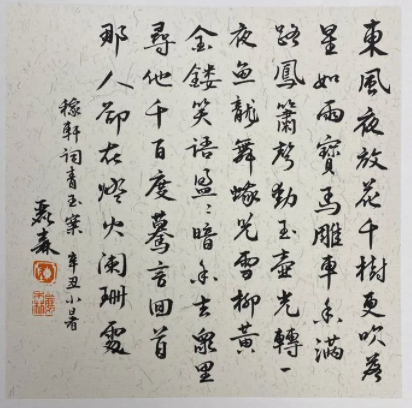 東風夜放花千樹更吹落
星如雨寶馬雕車香滿
路鳳簫聲動玉壺光轉一
夜魚龍舞蛾兒雪柳黃
金縷笑語盈〻暗香去眾里
尋他千百度驀然回首
那人卻在燈火闌珊處
稼軒詞青玉案 辛丑小暑